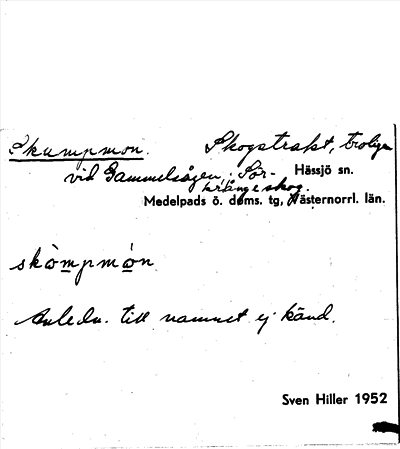 Skumpmon. Skogstrakt, troligen
vid Gammelsågen, i Sör-
Hässjö sn.
krångeskog.
Medelpads ö. doms. tg, Västernorrl. län.
skòmpmón
Anledn. till namnet ej känd.
Sven Hiller 1952